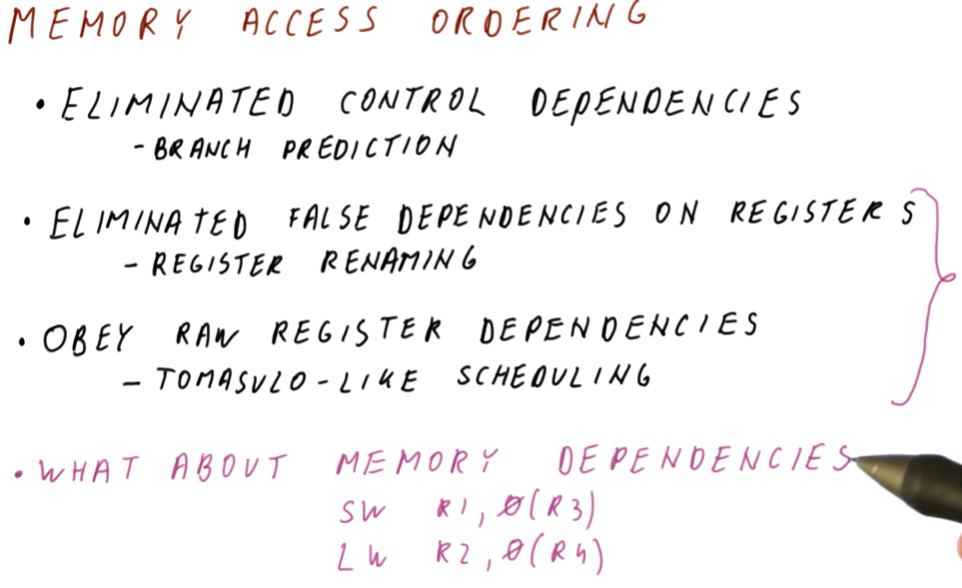 MEMORY ACCESS ORDERING
• ELIMINATED CONTROL DEPENDENCIES
- BRANCH PREDICTION
• ELIMINATED FALSE DEPENDENCIES ON REGISTERS
- REGISTER RENAMING
• OBEY RAW REGISTER DEPENDENCIES
- TOMASULO-LIKE SCHEDULING
• WHAT ABOUT MEMORY DEPENDENCIES
SW R1, 0(R3)
LW R2, 0(R4)